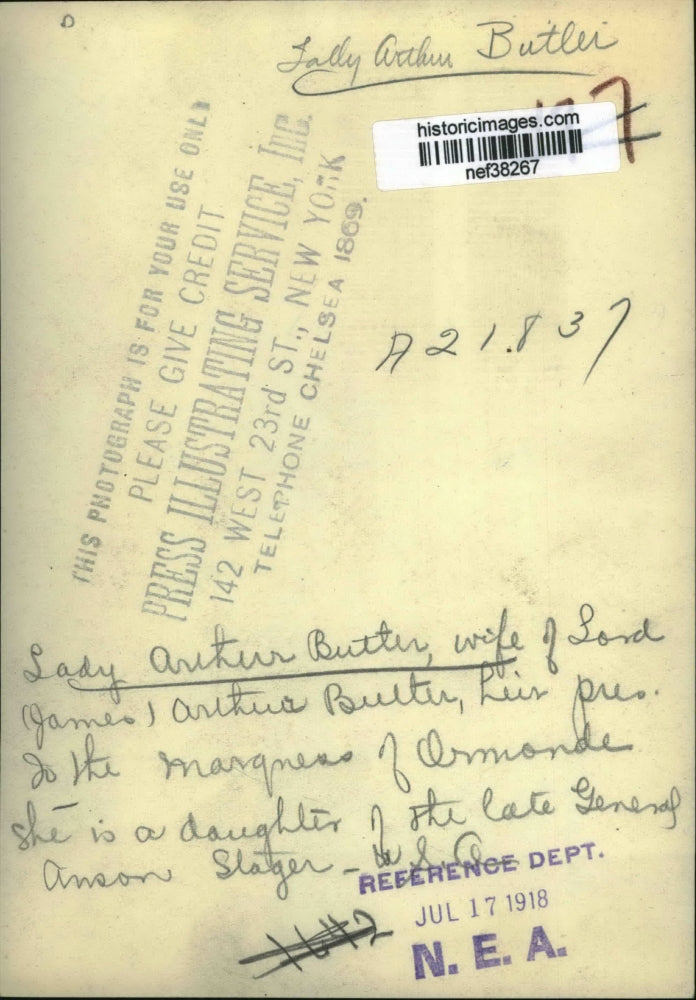 Lady Arthur Butler
historicimages.com
nef38267
THIS PHOTOGRAPH IS FOR YOUR USE ONLY
PLEASE GIVE CREDIT
PRESS ILLUSTRATING SERVICE, INC.
142 WEST 23rd ST., NEW YORK
TELEPHONE CHELSEA 1869.
A21.837
Lady Arthur Butler, wife of Lord
(James) Arthur Butler, heir pres.
to the marquess of Ormonde
She is a daughter of the late General
Anson Stager - U.S.A.
REFERENCE DEPT.
JUL 17 1918
N. E. A.